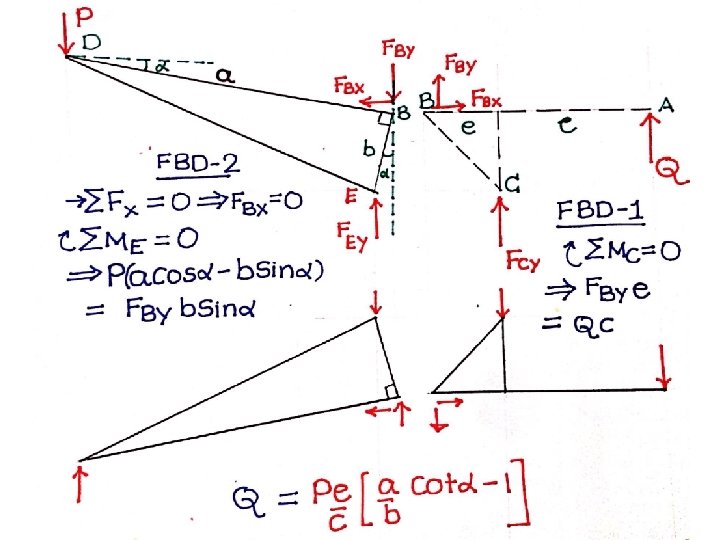 P
D
α
a
F_By
F_Bx
B
b
α
E
F_Ey
F_By
B
F_Bx
e
c
A
Q
C
F_Cy
FBD-2
→ΣF_x = 0 ⇒ F_Bx = 0
↻ΣM_E = 0
⇒ P(a cosα - b sinα)
= F_By b sinα
FBD-1
↻ΣM_C = 0
⇒ F_By e
= Qc
Q = Pe/c [a/b cotα - 1]